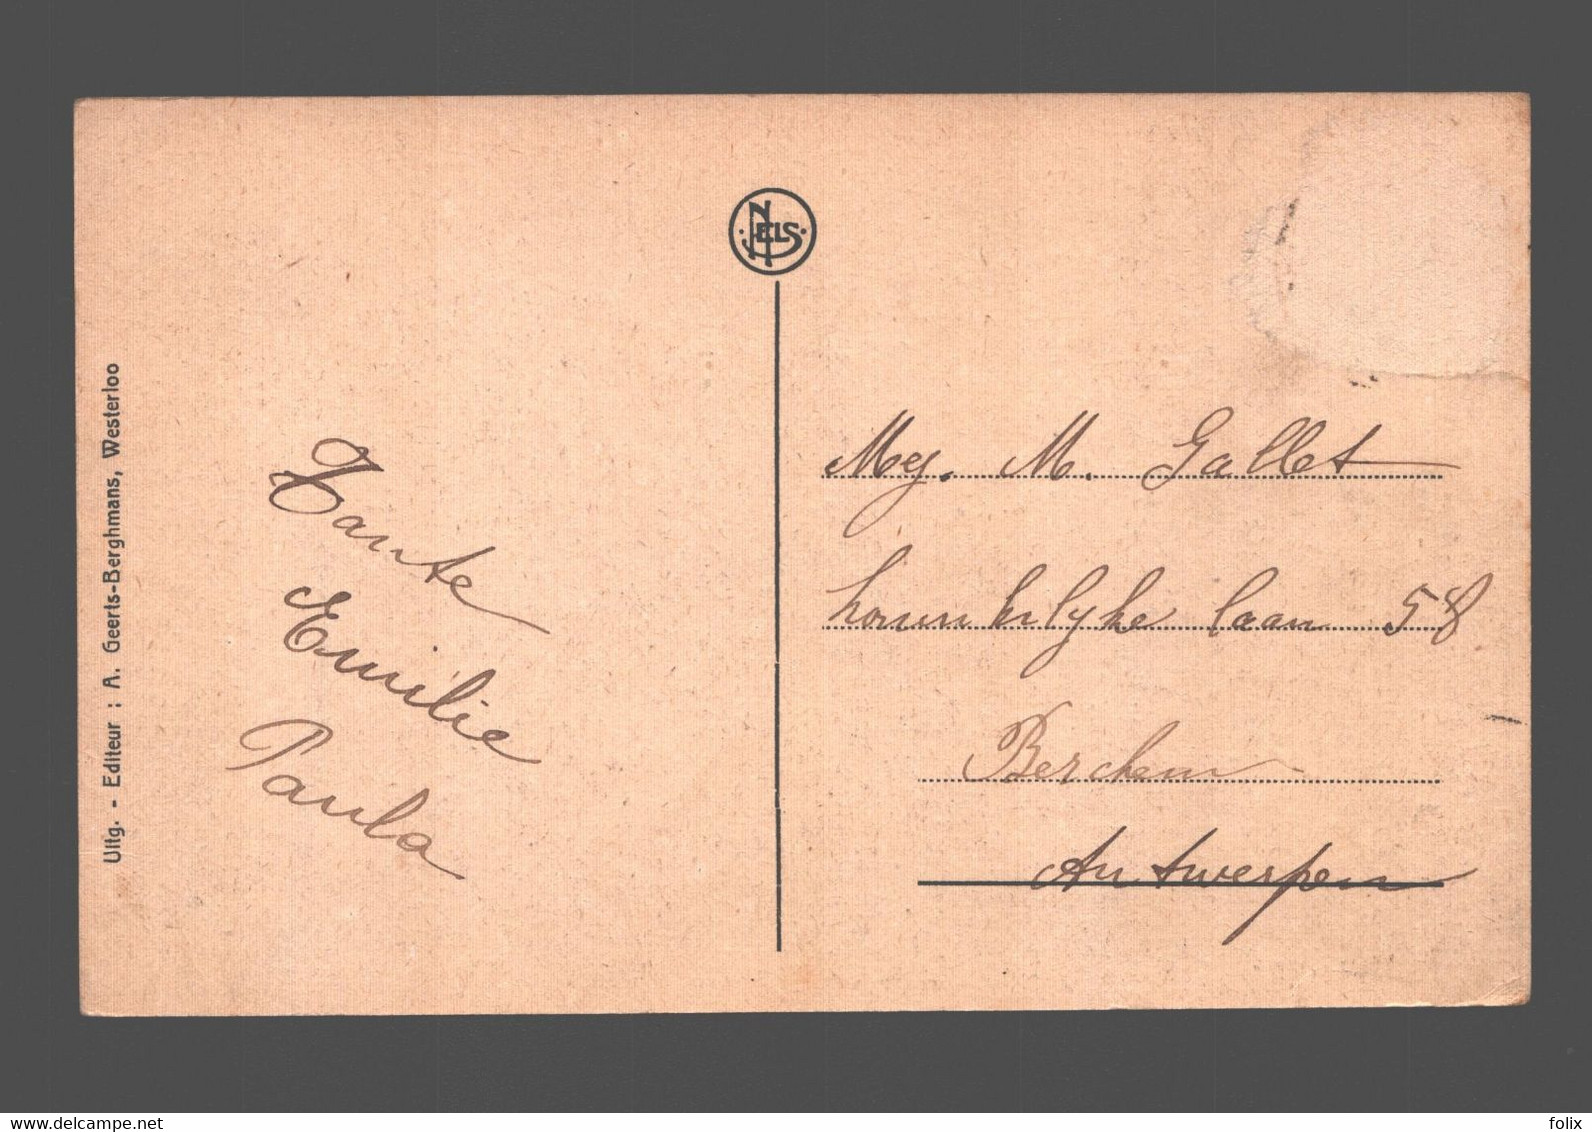 Uitg. - Editeur : A. Geerts-Berghmans, Westerloo
NELS
Tante
Emilie
Paula
Mej. M. Gallet
koninklijke laan 58
Berchem
Antwerpen
www.delcampe.net
folix